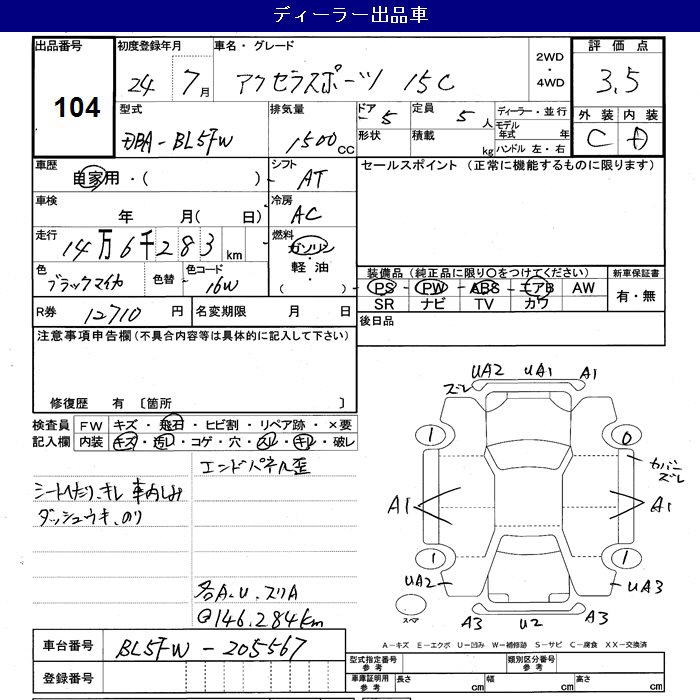 ディーラー出品車
出品番号 初度登録年月 車名・グレード 2WD・4WD 評価点
104 24 7月 アクセラスポーツ 15C 3.5
型式 排気量 ドア 5 定員 5人 ディーラー・並行 外装 内装
DBA-BL5FW 1500cc 形状 積載 kg モデル年式 年 ハンドル 左・右 C D
車歴 自家用・( ) シフト AT セールスポイント (正常に機能するものに限ります)
車検 年 月( 日) 冷房 AC
走行 14万6千283km 燃料 ガソリン・軽油 ( )
色 ブラックマイカ 色替 色コード 16W
装備品 (純正品に限り○をつけてください) 新車保証書
PS PW ABS エアB AW 有・無
SR ナビ TV カワ
R券 12710円 名変期限 月 日 後日品
注意事項申告欄 (不具合内容等は具体的に記入して下さい)
修復歴 有 〔箇所 〕
検査員記入欄 FW キズ・飛石・ヒビ割・リペア跡・×要
内装 キズ・汚レ・コゲ・穴・スレ・キレ・破レ
エンドパネル歪
シートへたり、キレ 車内しみ
ダッシュウキ、のり
各A.U.スリA
@146.284km
UA2 UA1 A1
ズレ
1 0
カバーズレ
A1 A1
1 1
UA2 UA3
スペア A3 U2 A3
A−キズ E−エクボ U−凹み W−補修跡 S−サビ C−腐食 XX−交換済
車台番号 BL5FW-205567
型式指定番号 参考 類別区分番号 参考
登録番号 車庫証明用 参考 長さ cm 幅 cm 高さ cm